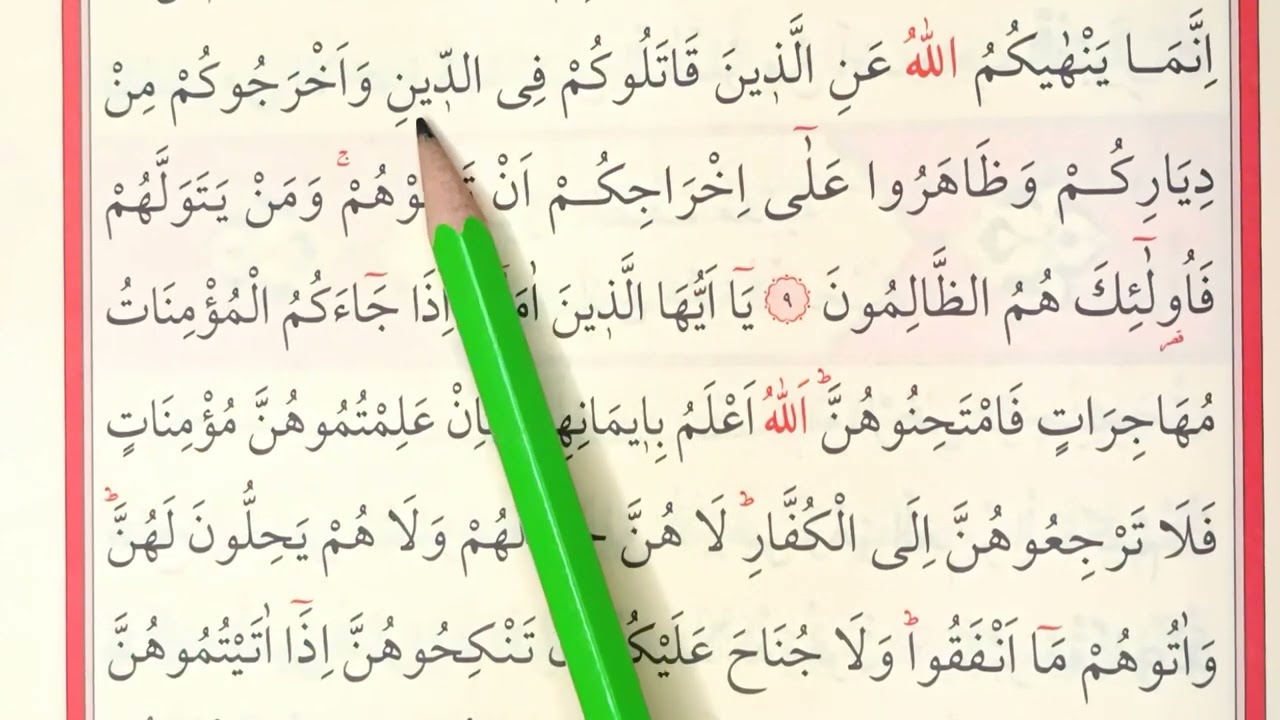 اِنَّمَا يَنْهٰيكُمُ اللّٰهُ عَنِ الَّذٖينَ قَاتَلُوكُمْ فِى الدّٖينِ وَاَخْرَجُوكُمْ مِنْ
دِيَارِكُمْ وَظَاهَرُوا عَلٰٓى اِخْرَاجِكُمْ اَنْ وَمَنْ يَتَوَلَّهُمْ
فَاُولٰٓئِكَ هُمُ الظَّالِمُونَ ٩ يَٓا اَيُّهَا الَّذٖينَ اِذَا جَٓاءَكُمُ الْمُؤْمِنَاتُ
قصر
مُهَاجِرَاتٍ فَامْتَحِنُوهُنَّ ط اَللّٰهُ اَعْلَمُ عَلِمْتُمُوهُنَّ مُؤْمِنَاتٍ
فَلَا تَرْجِعُوهُنَّ اِلَى الْكُفَّارِ ط لَا هُنَّ لَهُمْ وَلَا هُمْ يَحِلُّونَ لَهُنَّ ط
وَاٰتُوهُمْ مَٓا اَنْفَقُوا ط وَلَا جُنَاحَ تَنْكِحُوهُنَّ اِذَٓا اٰتَيْتُمُوهُنَّ